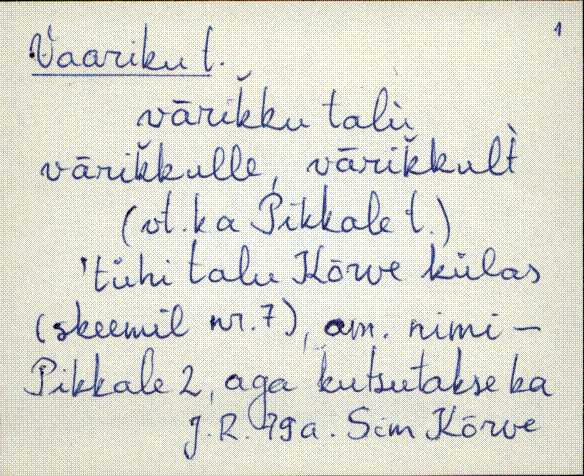 1
Vaariku t.
vārik̆ku talù
vārik̆kulle, vārik̆kult̀
(vt. ka Pikkale t.)
'tühi talu Kōrve külas
(skeemil nr. 7), am. nimi –
Pikkale 2, aga kutsutakse ka
J. R. 79 a. Sim Kōrve